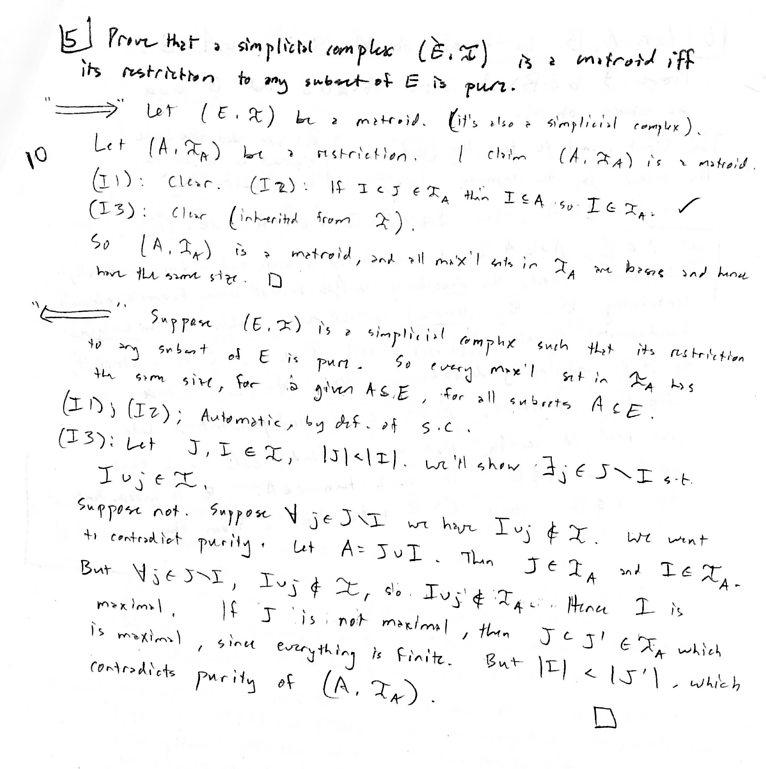 5 Prove that a simplicial complex (E, I) is a matroid iff
its restriction to any subset of E is pure.
"⟹" Let (E, I) be a matroid. (it's also a simplicial complex).
10
Let (A, I_A) be a restriction. I claim (A, I_A) is a matroid.
(I1): Clear. (I2): If I ⊂ J ∈ I_A then I ⊆ A so I ∈ I_A. ✓
(I3): Clear (inherited from I).
So (A, I_A) is a matroid, and all max'l sets in I_A are bases and hence
have the same size. □
"⟸" Suppose (E, I) is a simplicial complex such that its restriction
to any subset of E is pure. So every max'l set in I_A has
the same size, for a given A ⊆ E, for all subsets A ⊆ E.
(I1), (I2); Automatic, by def. of s.c.
(I3): Let J, I ∈ I, |J| < |I|. We'll show ∃ j ∈ J \ I s.t.
I ∪ j ∈ I.
Suppose not. Suppose ∀ j ∈ J \ I we have I ∪ j ∉ I. We want
to contradict purity. Let A = J ∪ I. Then J ∈ I_A and I ∈ I_A.
But ∀ j ∈ J \ I, I ∪ j ∉ I, so I ∪ j ∉ I_A. Hence I is
maximal. If J is not maximal, then J ⊂ J' ∈ I_A which
is maximal, since everything is finite. But |I| < |J'|, which
contradicts purity of (A, I_A).
□